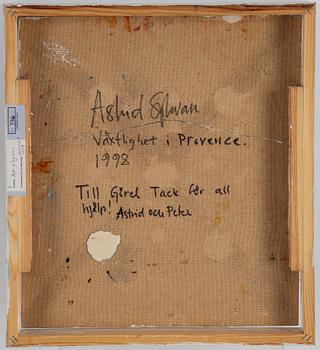 Astrid Sylwan
Växtlighet i Provence.
1998
Till Gärd Tack för all
hjälp! Astrid och Peter